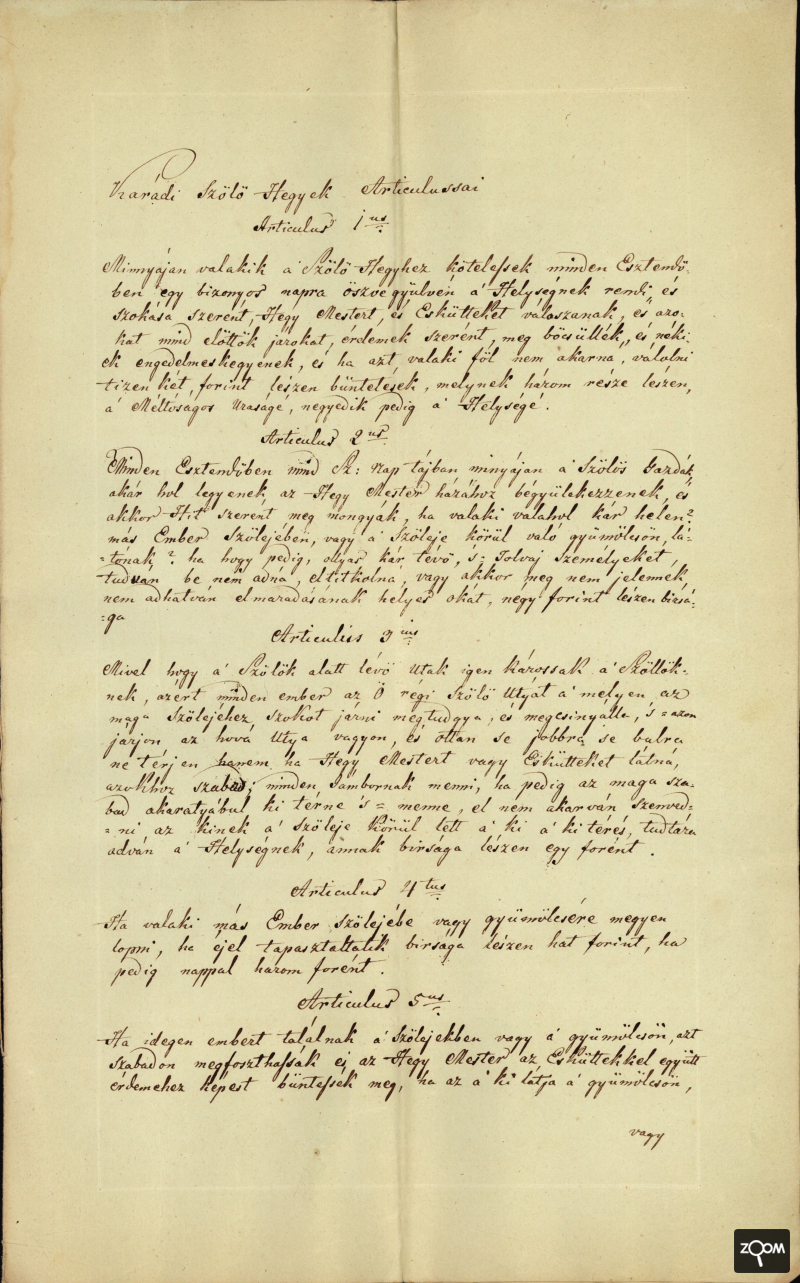 Karádi Szölö Hegyek Articulussai
Articulus 1us
Minnyájan valakik a' Szölö Hegyhez kötelessek minden Esztendö-
ben egy bizonyos napra öszve gyülvén a' Helységnek rendi, és
szokása szerent, Hegy Mestert, és Eskütteket válaszanak, és azo-
kat mind elöttök jarokat, érdemek szerént, meg böcsüllék, és néki-
ek engedelmeskegyenek, és ha azt valaki föl nem akarna, válolni
tizenkét, forint lészen büntetések, melynek három része lészen,
a' Méltóságos Uraságé, negyedik pedig a' Helységé.
Articulus 2us
Minden Esztendöben mind Sz: nap tájban minyáján a' Szölös Gazdák
akár hol legyenek, az Hegy Mester házához bégyülekezzenek, és
akkor Hit szerent meg mongyák, ha valaki valahol kár helen?
más Ember Szölejében, vagy a' Szöleje körül való gyümölcsön, lá-
=tónak? ha hogy pedig, ollyas kár tévö, s: Tolvaj Személyeket,
tudván be nem adná, eltitkolna, vagy akkor meg nem jelennék,
nem adhatván elmaradásának helyes okát, négy forint lészen birsá-
=ga
Articulus 3ius
Mivel hogy a' Szölök alatt lévö utak igen károssak a' Szöllök-
nek, azért minden ember az Ö régi Szölö Utyát a' melyen az
maga Szölejéhez szokot járni megtudgya, és megcsinyálla, s= azon
járjon az hová Utya vagyon, és ottan se jobbra se balra
ne térjen hanem ha Hegy Mestert vagy Eskütteket látná,
azokhoz szabad minden Jambornak menni, ha pedig az maga sza-
bad akaratyábul ki térne s= menne, el nem akarván szenved-
=ni az kinek a' szöleje körül lett a' ki a' ki térés, tudtára
adván a' Helységnek, annak birsága lészen egy forént.
Articulus 4tus
Ha valaki más Ember szölejébe vagy gyümölcsére megyen
lopni, ha éjel tapasztaltatik birsága lészen hat forint, ha
pedig nappal három forént.
Articulus 5us
Ha idegen embert találnak a' Szölejekben vagy a' gyümölcsön, azt
szabadon megfoszthassák és az Hegy Mester az Esküttekkel együtt
érdeméhez képest büntessék meg, ha az a' ki látja a' gyümölcsön,
vagy
ZOOM